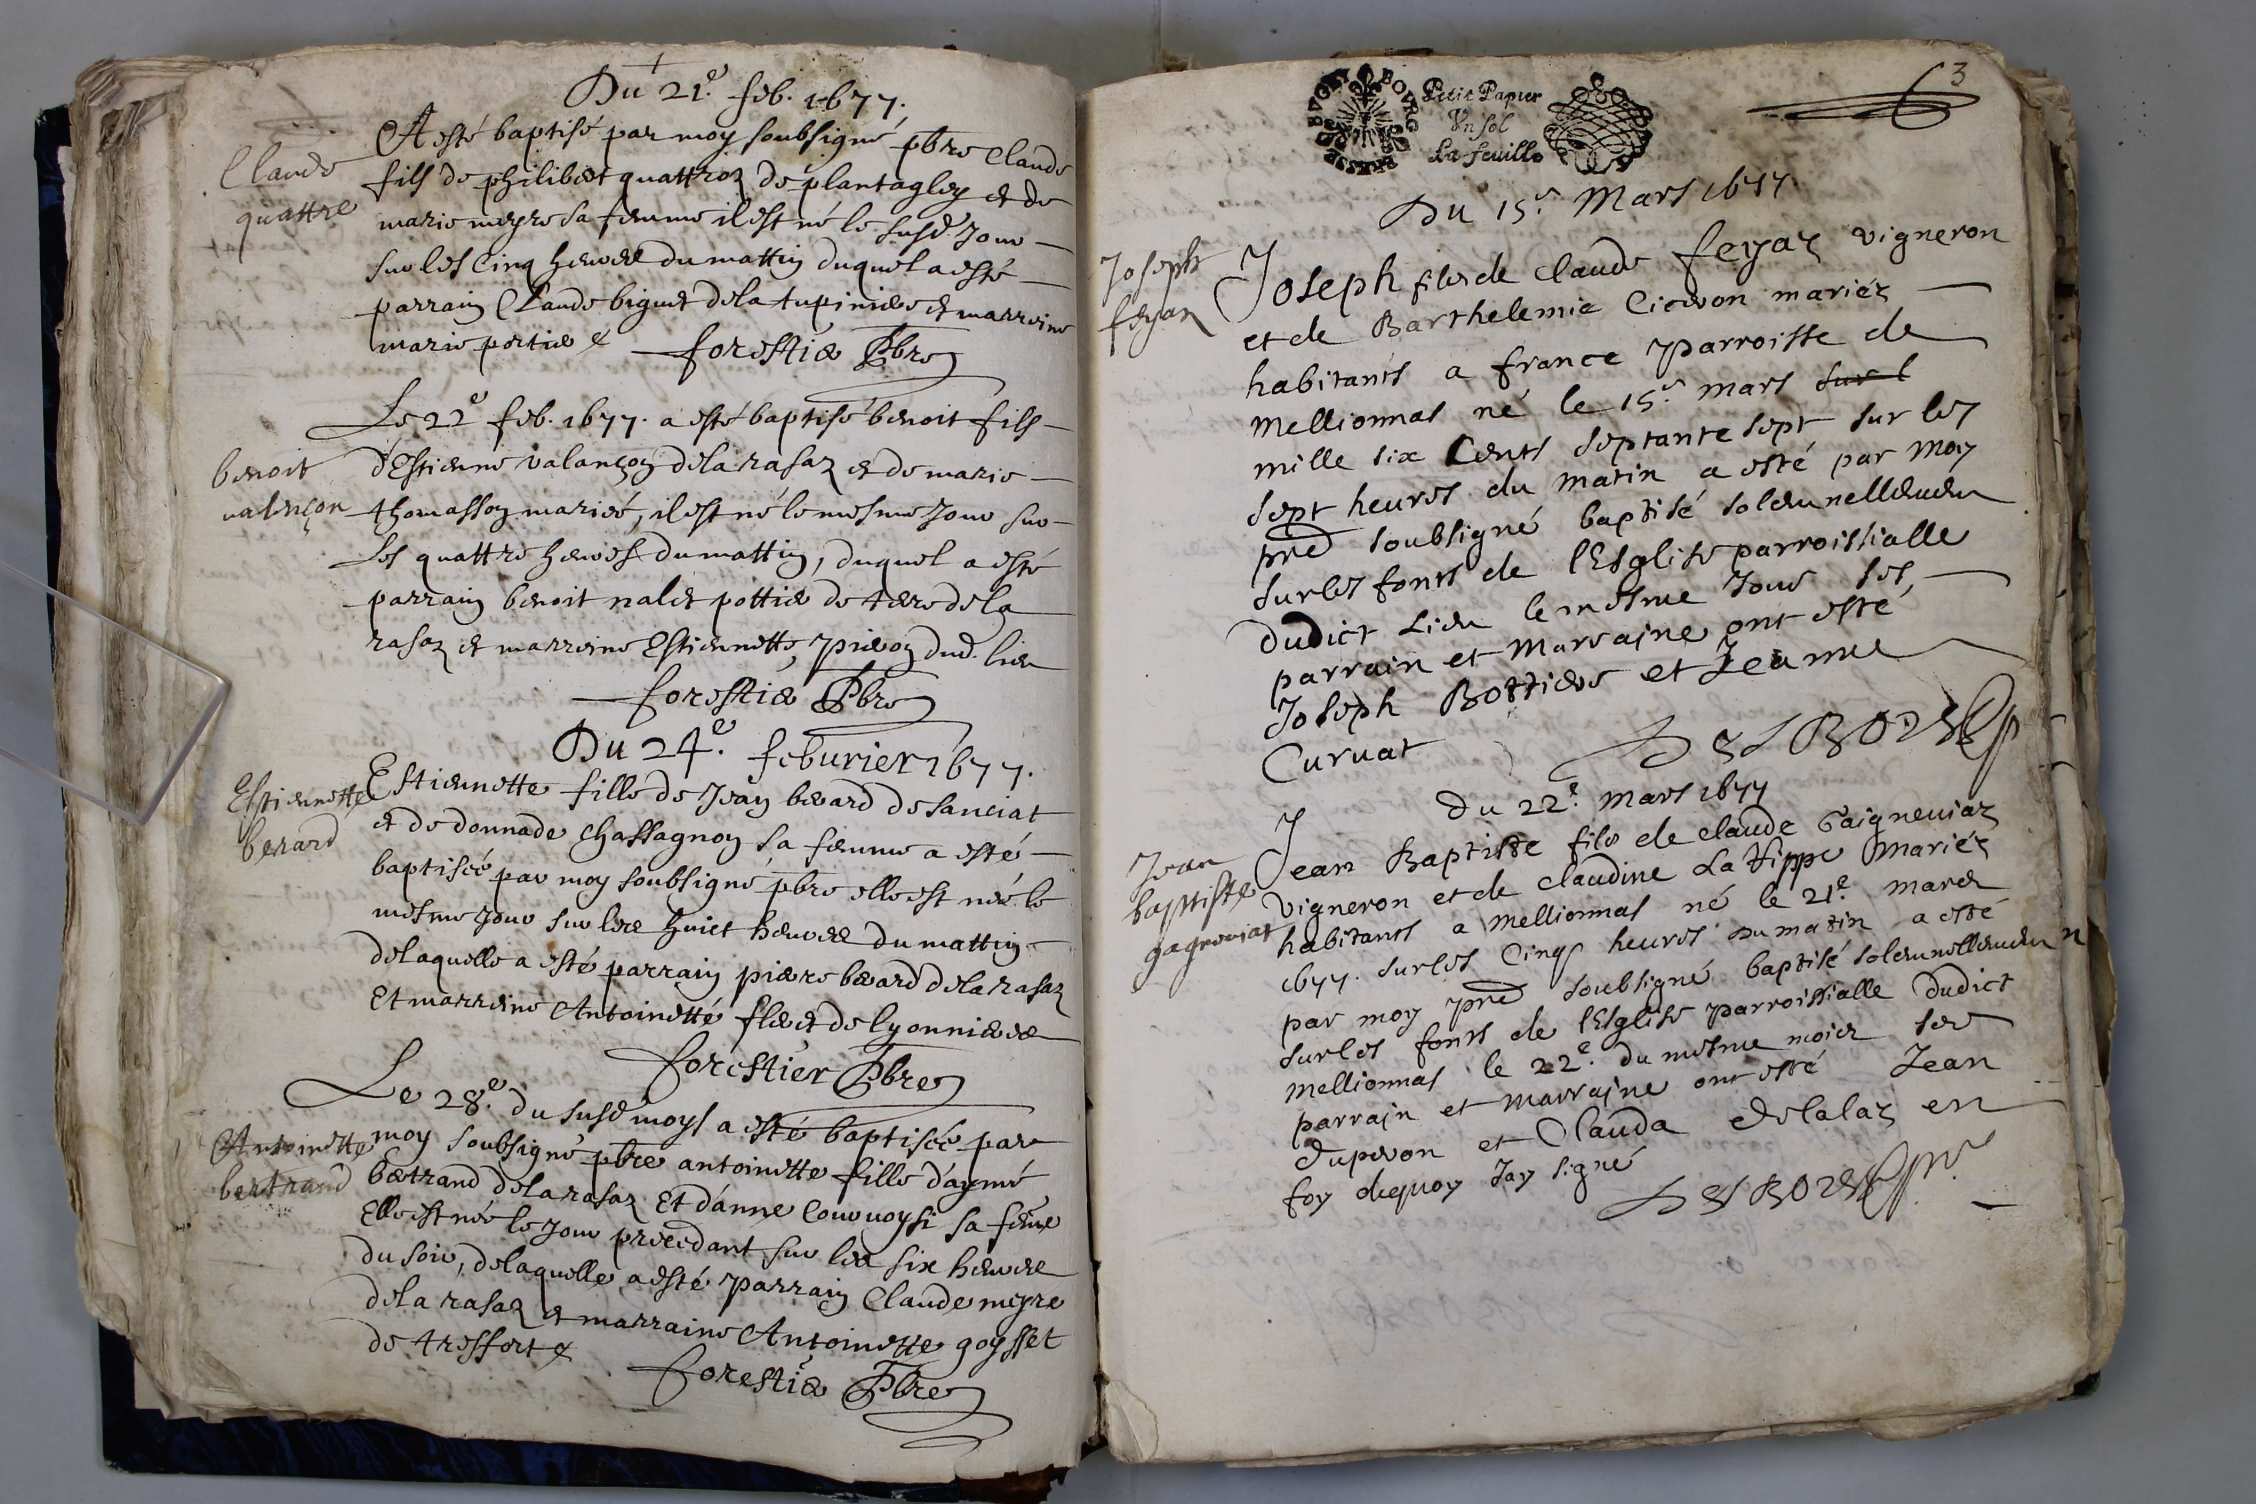 Du 21.e feb. 1677.
Claude
quattre
A esté baptisé par moy soubsigné pbre Claude
fils de philibert quattroz de plantagley et de
marie meyre sa femme il est né le susd. Jour
sur les cinq heures du mattin duquel a esté
parrain Claude biguet de la tupiniere et marreine
marie portier &
forestier Pbre
benoit
valençon
Le 22e feb. 1677. a esté baptisé benoit fils
d'Estienne valançon de la rasaz et de marie
thomasson mariés, il est né le mesme Jour sur
les quattre heures du mattin, duquel a esté
parrain benoit nalet pottier de terre de la
rasaz et marreine Estiennette pieron dud. lieu
forestier Pbre
Du 24.e feburier 1677.
Estiennette
berard
Estiennette fille de Jean berard de sanciat
et de donnade Chassagnon sa femme a esté
baptisée par moy soubsigné pbre elle est née le
mesme Jour sur les huict heures du mattin
de laquelle a esté parrain pierre berard de la rasaz
Et marreine Antoinette de lyonnieres
forestier Pbre
Antoinette
bertrand
Le 28.e du susd moys a esté baptisée par
moy soubsigné pbre antoinette fille d'aymé
bertrand de la rasaz Et d'anne Couvoysi sa feme
Elle est née le Jour precedant sur les six heures
du soir, de laquelle a esté parrain Claude meyre
de la rasaz et marraine Antoinette goysset
de tressort &
forestier Pbre
3
BOURG
Petit Papier
Un sol
La feuille
Du 15.e Mars 1677
Joseph
feyan
Joseph fils de Claude feyaz vigneron
et de Barthelemie Ciceron mariéz
habitants a france parroisse de
mellionnas né le 15.e mars sur l
mille six Cents septante sept sur les
sept heures du matin a esté par moy
pre soubsigné baptisé solemnellemen
sur les fonts de l'Esglise parroissialle
dudict Lieu le mesme Jour ses
parrain et marraine ont esté
Joseph Bottiere et Jeanne
Curvat
Du 22.e mars 1677
Jean
baptiste
gagneviat
Jean Baptiste fils de claude Gaigneviaz
vigneron et de claudine La Hippe mariéz
habitants a mellionnas né le 21.e mars
1677. sur les Cinq heures du matin a esté
par moy pre soubsigné baptisé solemnellemen
sur les fonts de l'Esglise parroissialle Dudict
mellionnas le 22.e du mesme mois ses
parrain et marraine ont esté Jean
Duperon et Clauda Delalaz en
foy dequoy Jay signé